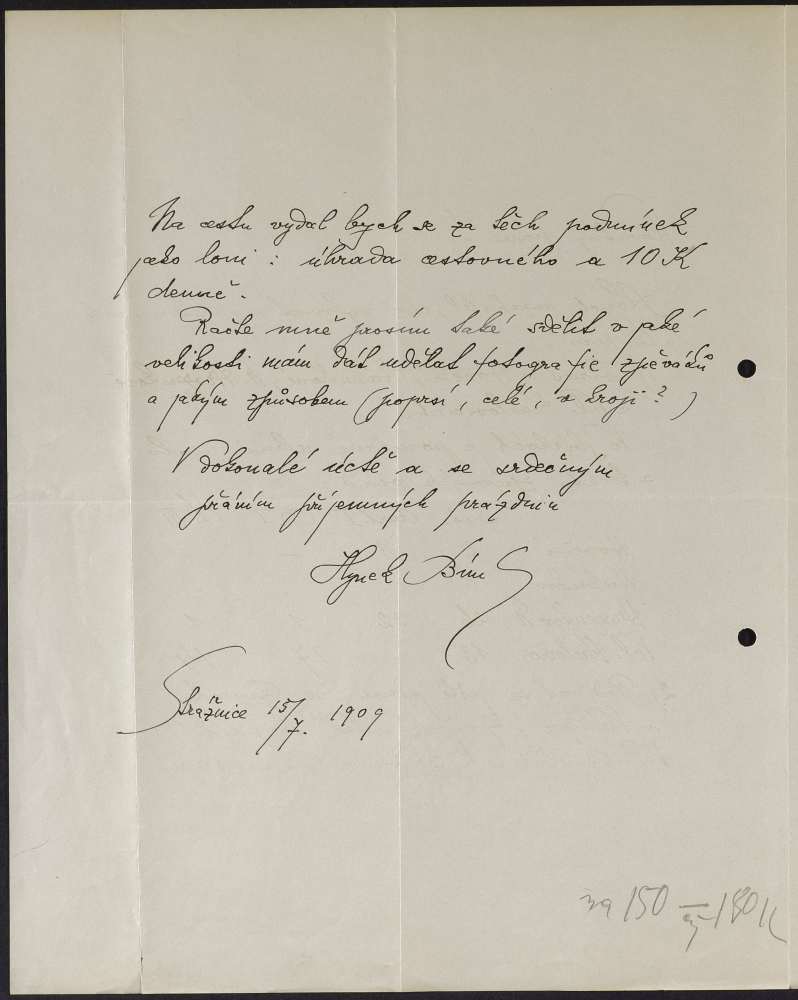 Na cestu vydal bych se za těch podmínek
jako loni : úhrada cestovného a 10 K
denně.
Račte mně prosím také sdělit v jaké
velikosti mám dát udělat fotografie zpěváků
a jakým způsobem (poprsí, celé, v kroji? )
V dokonalé úctě a se srdečným
přáním příjemných prázdnin
Hynek Bím
Strážnice 15/7. 1909
za 150 – až 180 K